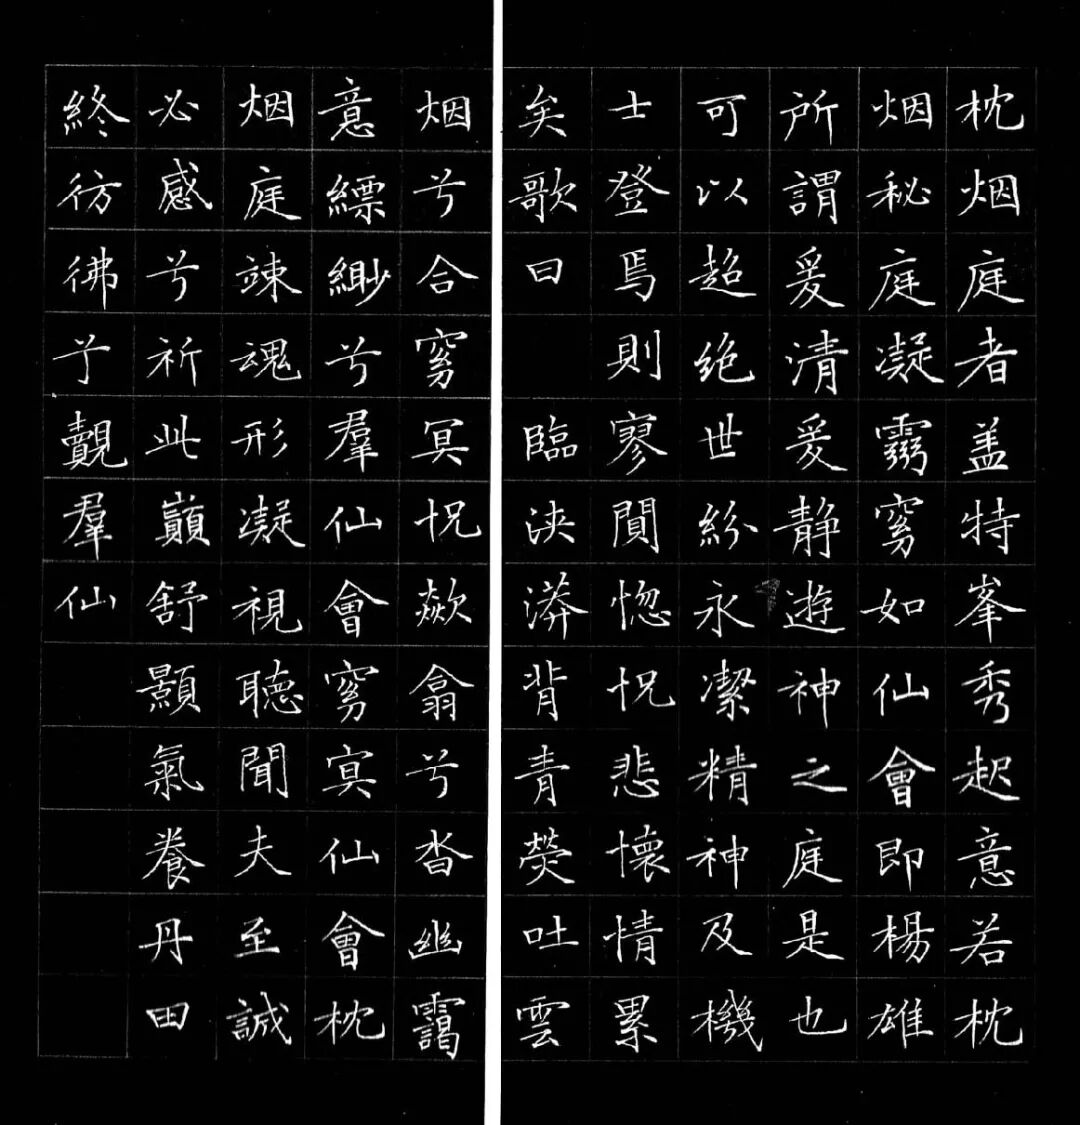 枕烟庭者盖特峯秀起意若枕
烟秘庭凝靈窈如仙會即楊雄
所謂爰清爰静遊神之庭是也
可以超绝世紛永潔精神及機
士登焉則寥闃惚怳悲懷情累
矣歌曰 臨泱漭背青熒吐雲
烟兮合窈冥怳欻翕兮沓幽靄
意縹緲兮羣仙會窈冥仙會枕
烟庭竦魂形凝視聽聞夫至誠
必感兮祈此巔舒顥氣養丹田
終彷彿兮覿羣仙